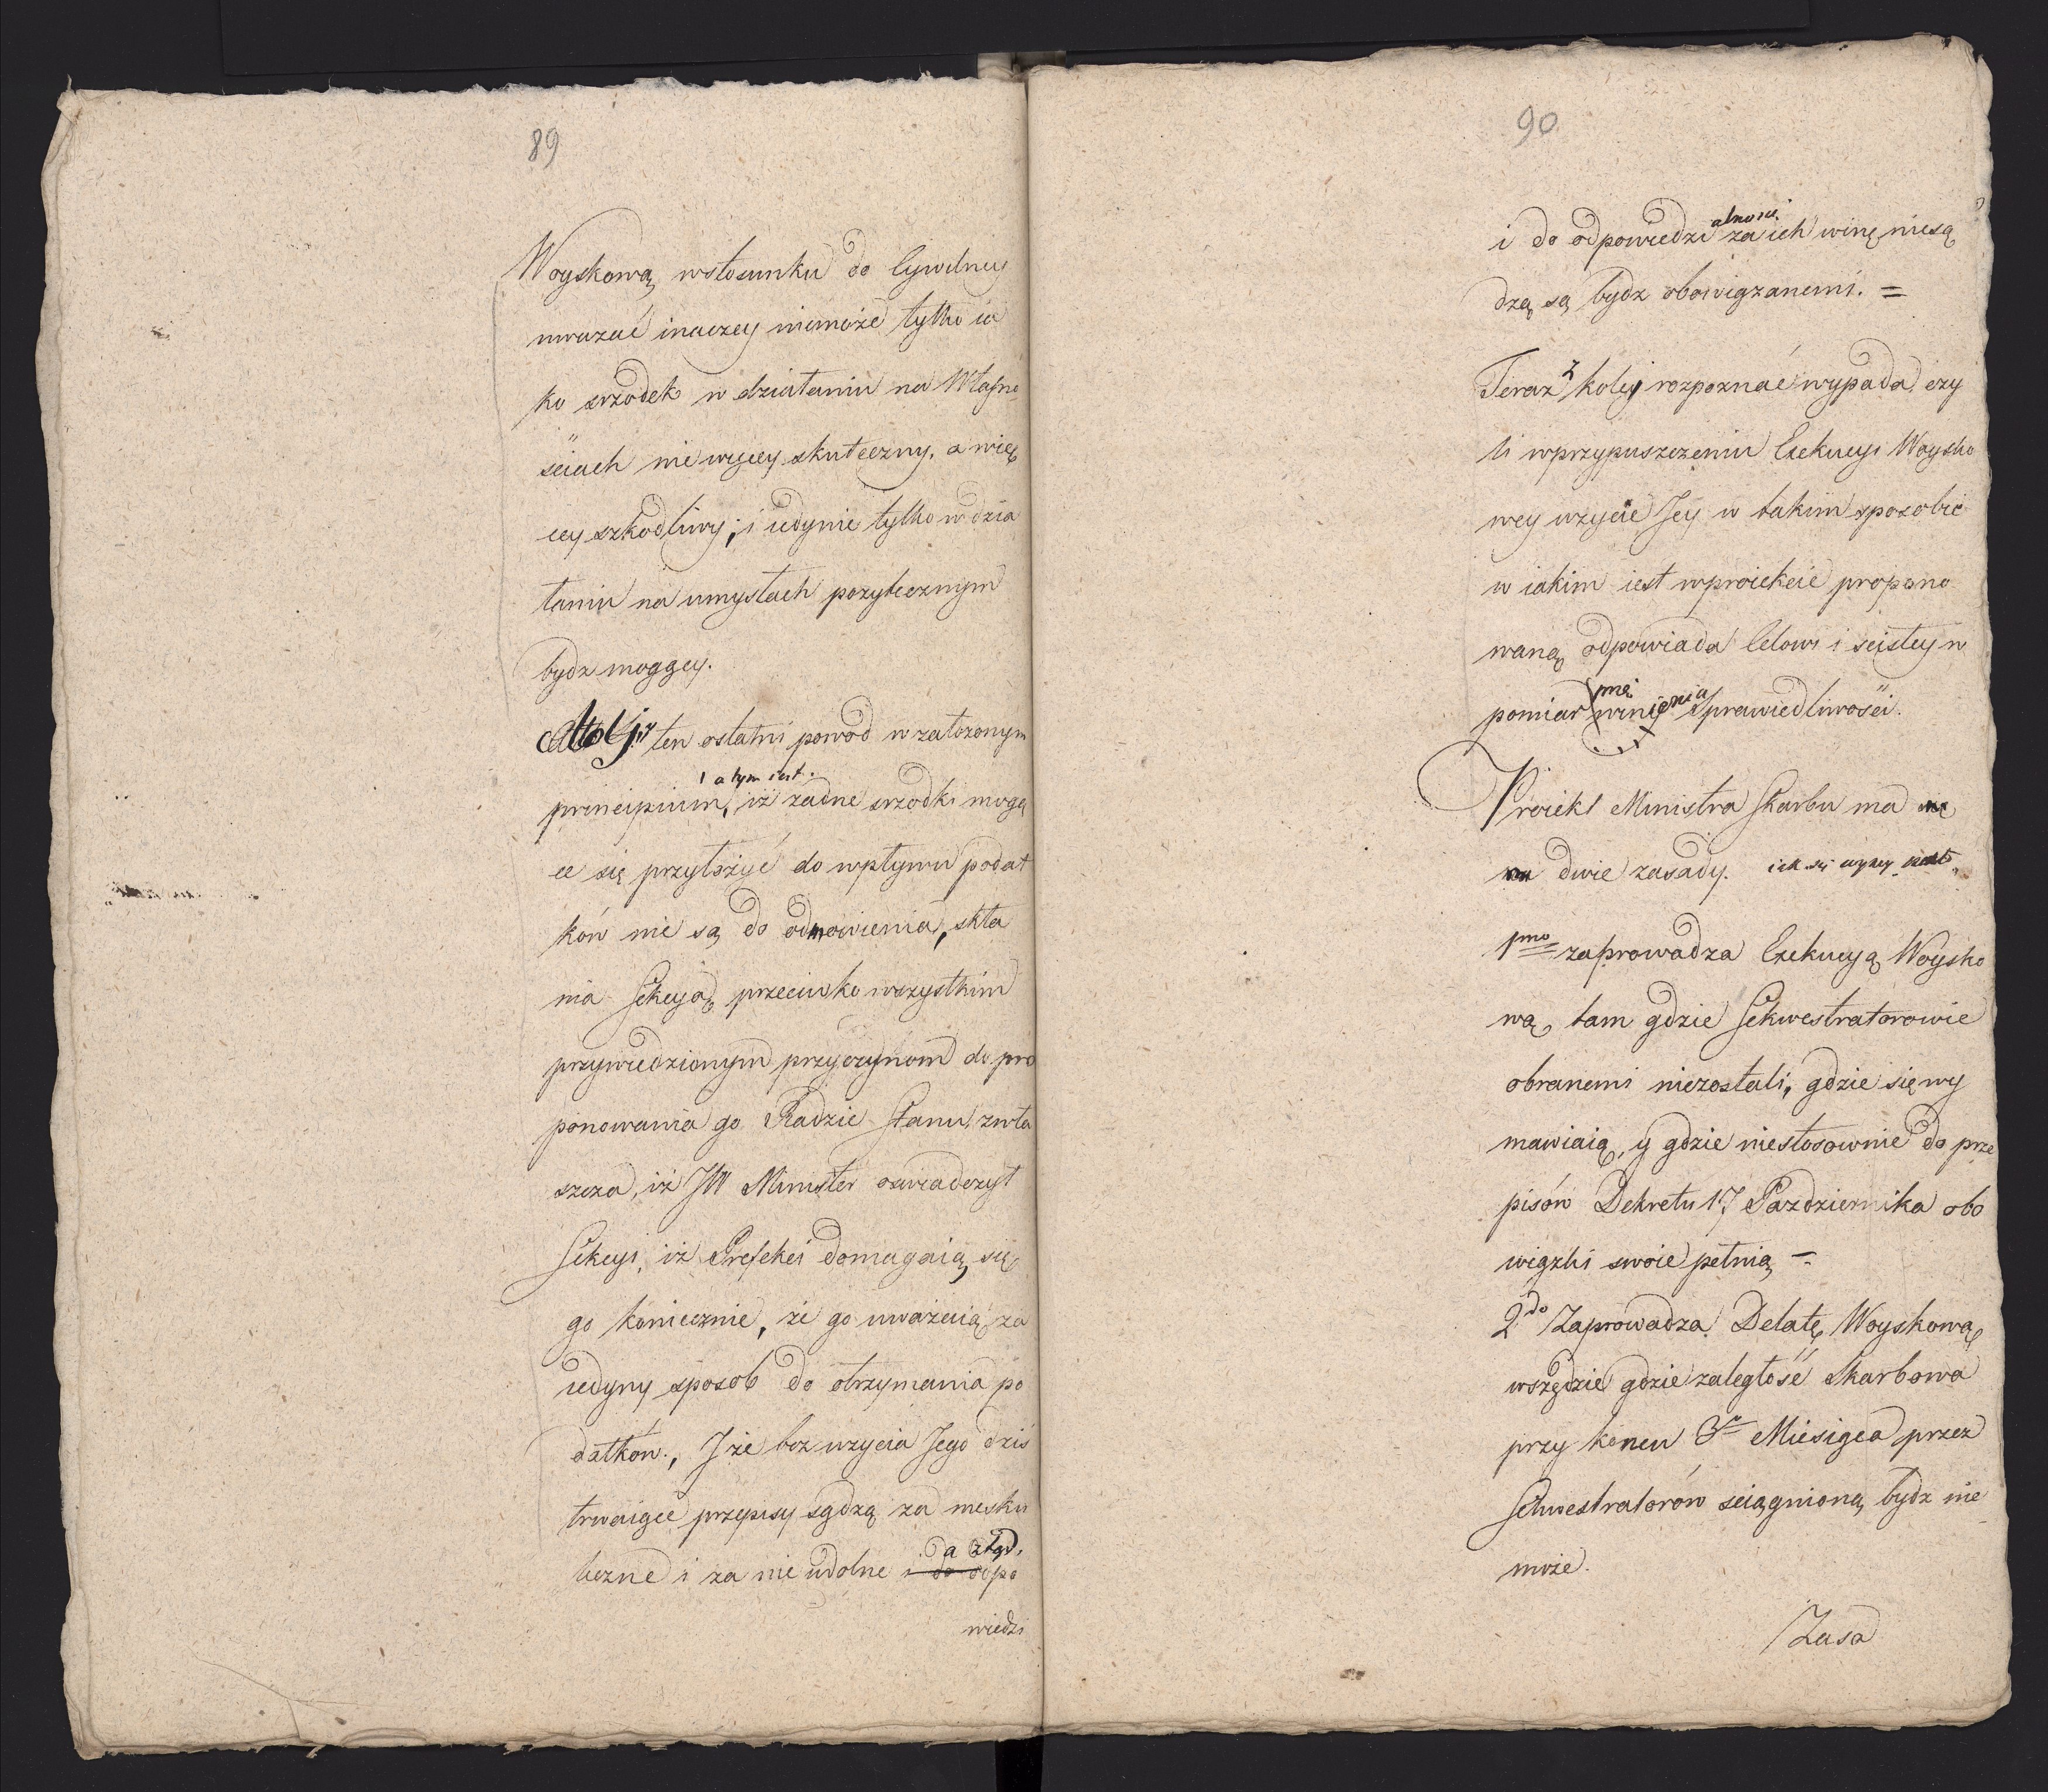 89
Woyskową wstosunku do Cywilney
uwazać inaczey niemoże tylko ia
ko srzodek w działaniu na Własno
sciach nie więcey skuteczny, a wię
cey szkodliwy; i iedynie tylko w dzia
łaniu na umysłach pozytecznym
bydz mogącey.
ten ostatni powod w załozonym
a tym iest.
principium, iż żadne srzodki mogą
ce się przyłożyć do wpływu podat
ków nie są do odmowienia, skła
nia Sekcyą przeciwko wszystkim
przywiedzionym przyczynom do pro
ponowania go Radzie Stanu, zwła
szcza, iż JW Minister oswiadczył
Sekcyi, iż Prefekci domagaią się
go koniecznie, że go uważaią za
iedyny sposob do otrzymania po
datków., I że bez uzycia Jego dziś
trwaiące przepisy sądzą za niesku
teczne i za nie udolne i do odpo
wiedzi
90
alnosci
i do odpowiedzi za ich winę niesą
dzą są bydz obowiązanemi. =
Teraz z koley rozpoznać wypada, czy
li wprzypuszczeniu Exekucyi Woysko
wey uzycie Jey w takim sposobie
w iakim iest wproiekcie propono
waną odpowiada Celowi i scisłey w
pomiar winienia Sprawiedliwości.
Proiekt Ministra Skarbu ma
dwie zasady. iak się wyzey
1mo zaprowadza Exekucyą Woysko
wą, tam gdzie Sekwestratorowie
obranemi niezostali, gdzie się wy
mawiaią, y gdzie niestosownie do prze
pisów Dekretu 17 Pazdziernika obo
wiązki swoie pełnią =
2do Zaprowadza Delatę Woyskową
wszędzie gdzie zaległość Skarbowa
przy koncu 3o Miesiąca przez
Sekwestratorów sciągnioną bydz nie
może.
Zasa